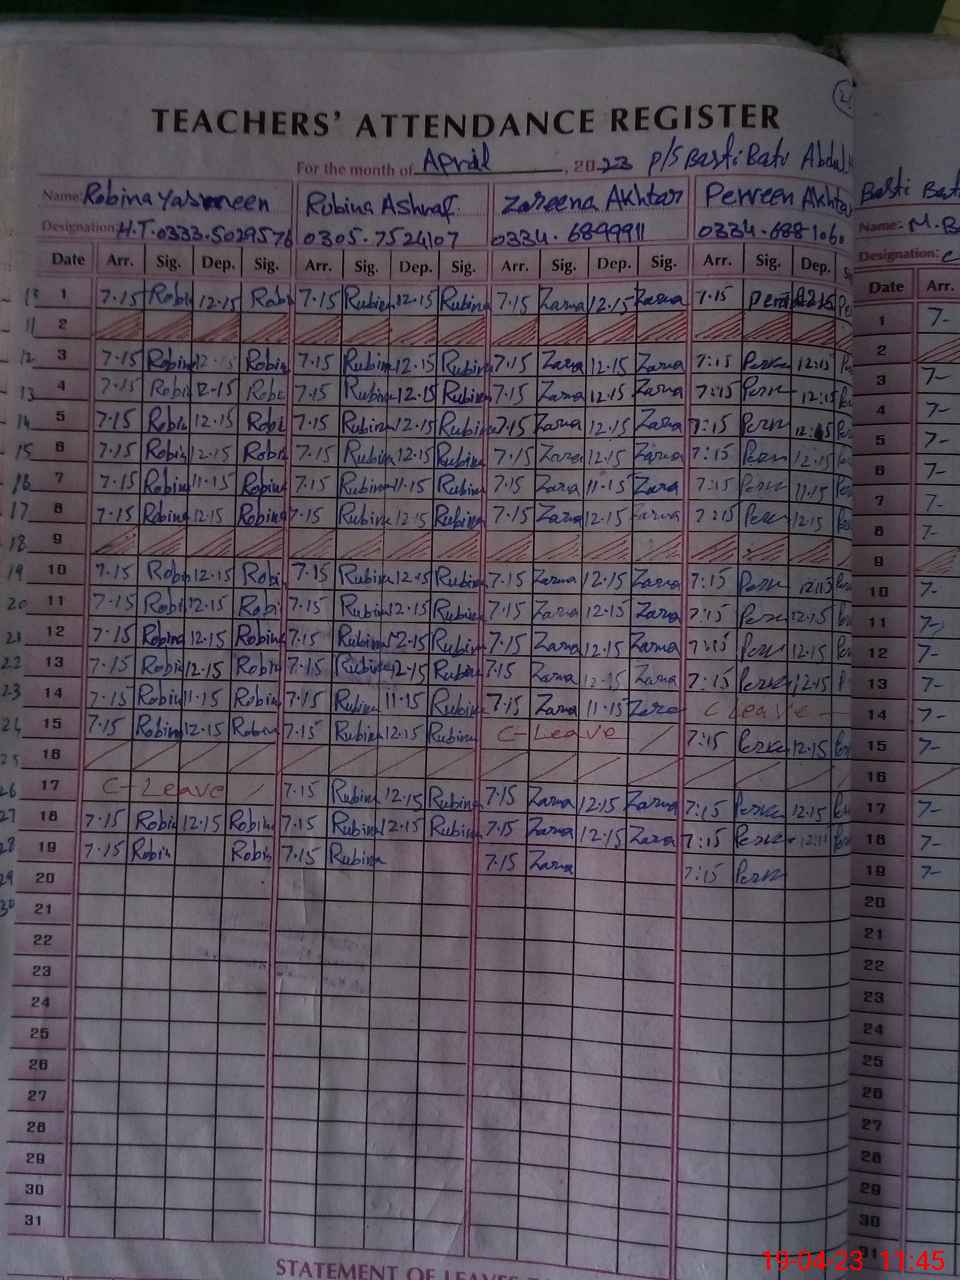 TEACHERS' ATTENDANCE REGISTER
For the month of April, 2023 P/S Basti Batu Abdul
Name: Robina Yasmeen Rubina Ashraf Zareena Akhtar Perveen Akhtar
Designation: H.T. 0333.5029576 0305.7524107 0334.6899911 0334.6881060
Date Arr. Sig. Dep. Sig. Arr. Sig. Dep. Sig. Arr. Sig. Dep. Sig. Arr. Sig. Dep.
1 7.15 Robi 12.15 Robi 7.15 Rubina 12.15 Rubina 7.15 Zarna 12.15 Zarna 7.15
2
3 7.15 Robina 12.15 Robina 7.15 Rubina 12.15 Rubina 7.15 Zarna 12.15 Zarna 7:15 12:15
4 7.15 Robi 12.15 Robi 7.15 Rubina 12.15 Rubina 7.15 Zarna 12.15 Zarna 7:15 12:15
5 7.15 Robi 12.15 Robi 7.15 Rubina 12.15 Rubina 7.15 Zarna 12.15 Zarna 7:15
6 7.15 Robi 12.15 Robi 7.15 Rubina 12.15 Rubina 7.15 Zarna 12.15 Zarna 7:15 12.15
7 7.15 Robina 11.15 Robina 7.15 Rubina 11.15 Rubina 7.15 Zarna 11.15 Zarna 7:15 11.15
8 7.15 Robina 12.15 Robina 7.15 Rubina 12.15 Rubina 7.15 Zarna 12.15 Zarna 7:15 12.15
9
10 7.15 Robi 12.15 Robi 7.15 Rubina 12.15 Rubina 7.15 Zarna 12.15 Zarna 7:15
11 7.15 Robi 12.15 Robi 7.15 Rubina 12.15 Rubina 7.15 Zarna 12.15 Zarna 7:15 12.15
12 7.15 Robina 12.15 Robina 7.15 Rubina 12.15 Rubina 7.15 Zarna 12.15 Zarna 7:15 12.15
13 7.15 Robi 12.15 Robi 7.15 Rubina 12.15 Rubina 7.15 Zarna 12.15 Zarna 7:15 12.15
14 7.15 Robina 11.15 Robina 7.15 Rubina 11.15 Rubina 7.15 Zarna 11.15 Zarna C Leave
15 7.15 Robina 12.15 Robina 7.15 Rubina 12.15 Rubina C-Leave 7:15 12.15
16
17 C-Leave 7.15 Rubina 12.15 Rubina 7.15 Zarna 12.15 Zarna 7:15 12.15
18 7.15 Robi 12.15 Robina 7.15 Rubina 12.15 Rubina 7.15 Zarna 12.15 Zarna 7:15
19 7.15 Robi Robi 7.15 Rubina 7.15 Zarna 7:15
20
21
22
23
24
25
26
27
28
29
30
31
STATEMENT OF LEAVES
Basti Bat
Name: M.B
Designation:
Date Arr.
1 7-
2
3 7-
4 7-
5 7-
6 7-
7 7-
8 7-
9
10 7-
11 7-
12 7-
13 7-
14 7-
15 7-
16
17 7-
18 7-
19 7-
20
21
22
23
24
25
26
27
28
29
30
31
19-04-23 11:45